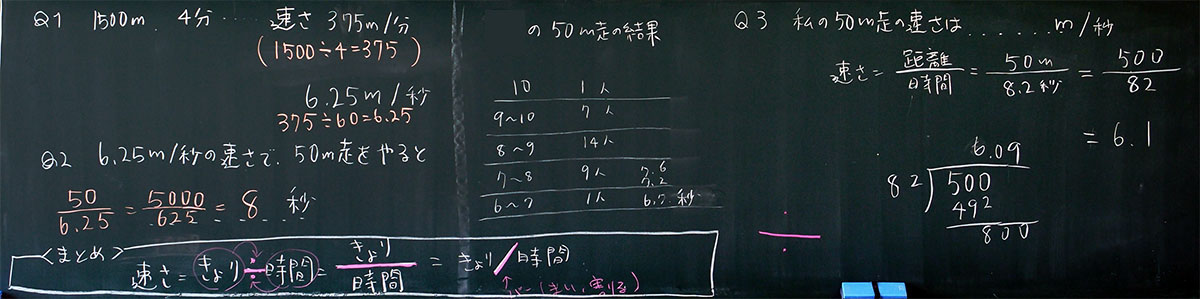 Q1 1500m. 4分‥‥ 速さ 375m/分
(1500÷4=375)
6.25m/秒
375÷60=6.25
Q2 6.25m/秒の速さで、50m走をやると
50/6.25 = 5000/625 = 8 秒
<まとめ>
速さ = きょり ÷ 時間 = きょり/時間 = きょり/時間
の50m走の結果
10 1人
9~10 7人
8~9 14人
7~8 9人 7.6 7.2
6~7 1人 6.7秒
Q3 私の50m走の速さは‥‥‥m/秒
速さ = 距離/時間 = 50m/8.2秒 = 500/82
= 6.1
6.09
82 500
492
800
÷